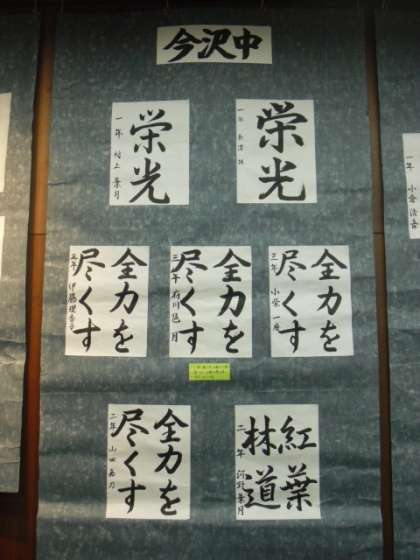 今沢中
栄光
一年
栄光
一年 村上 葉月
全力を
尽くす
三年
全力を
尽くす
三年
全力を
尽くす
三年
紅葉
林道
二年 河野 葉月
全力を
尽くす
二年 山田
一年 小倉